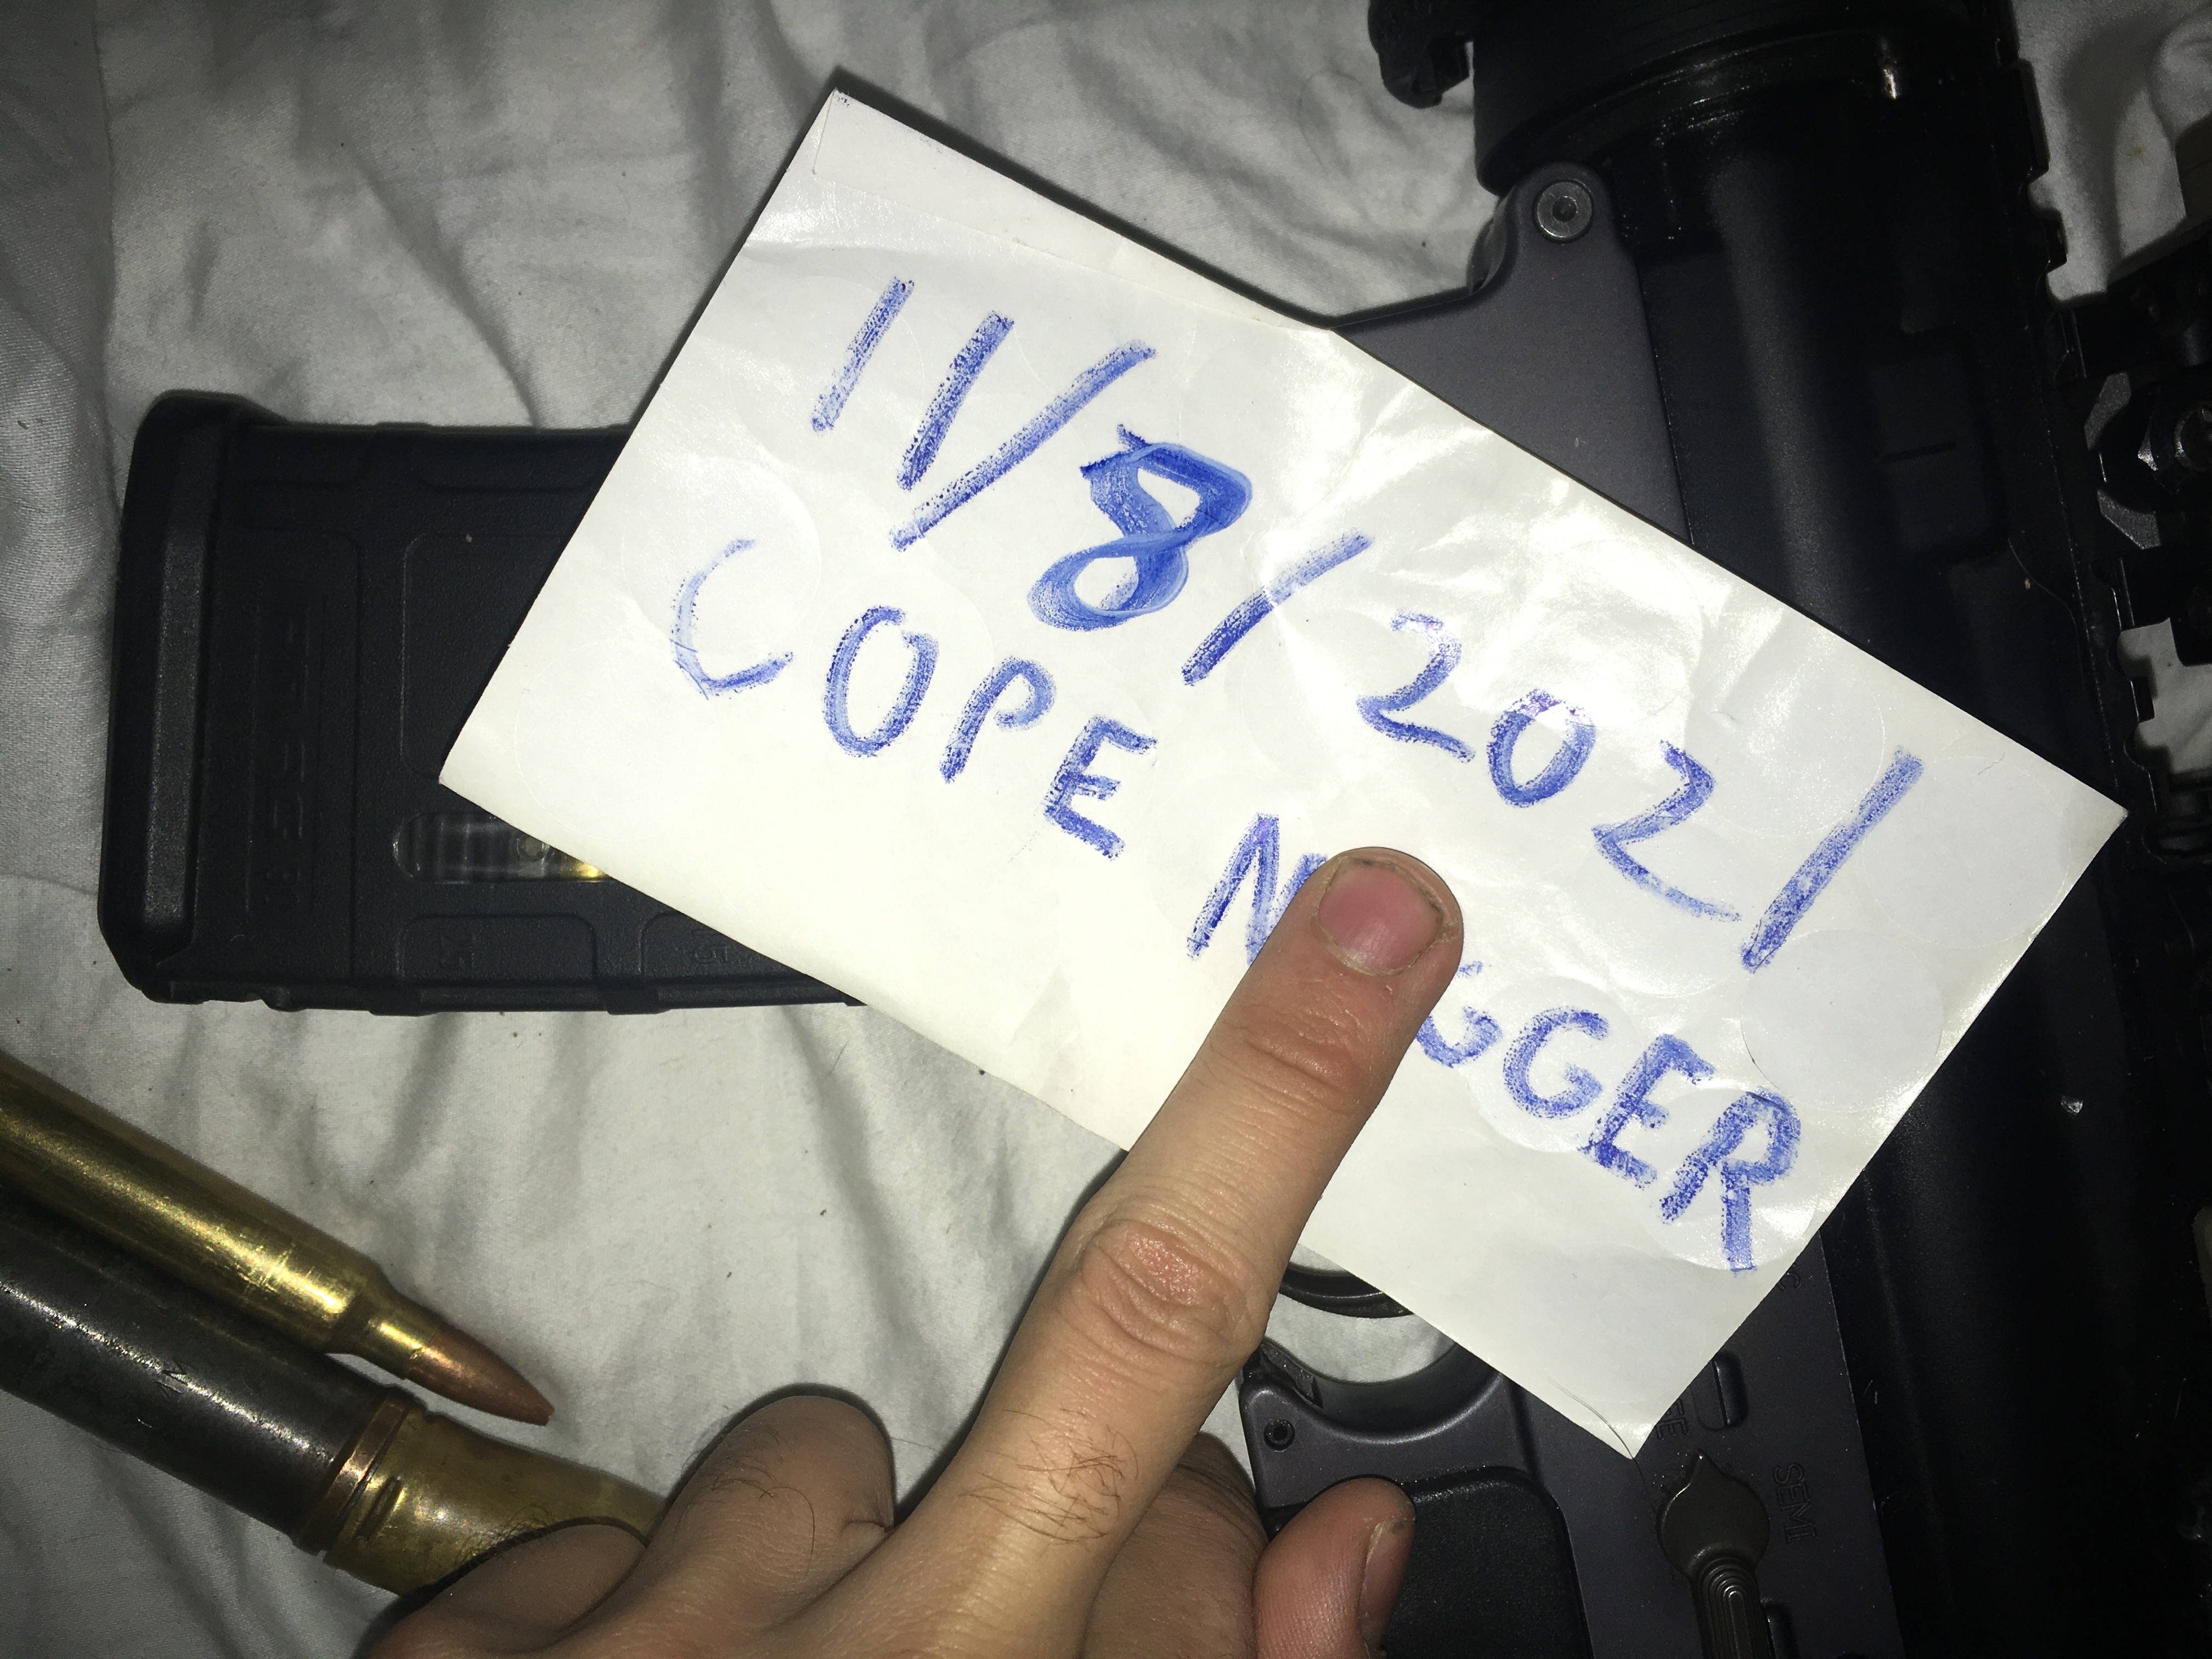 11/8/2021
COPE N GGER
SEMI